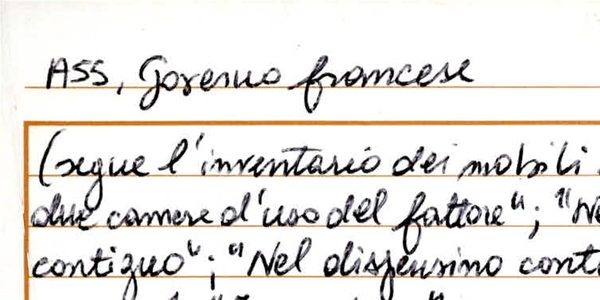 ASS, Governo francese
(segue l'inventario dei mobili
due camere d'uso del fattore"; "Ne
contiguo"; "Nel dispensino conti